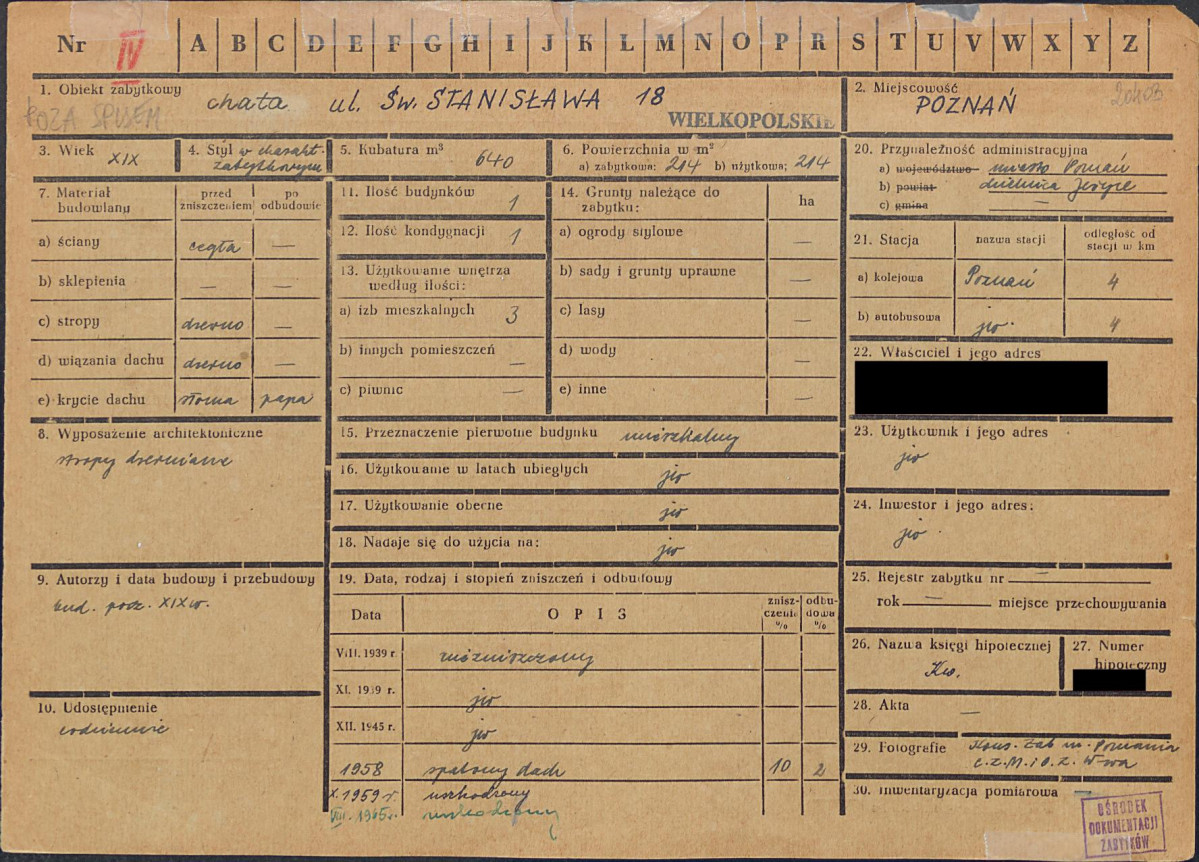 Nr IV A B C D E F G H I J K L M N O P R S T U V W X Y Z
1. Obiekt zabytkowy chata ul. Św. STANISŁAWA 18
POZA SPISEM
WIELKOPOLSKIE
2. Miejscowość
POZNAŃ
3. Wiek XIX
4. Styl w charakt.
zabytkowym
5. Kubatura m³ 640
6. Powierzchnia w m²
a) zabytkowa: 214 b) użytkowa: 214
7. Materiał budowlany
przed zniszczeniem
po odbudowie
a) ściany cegła —
b) sklepienia — —
c) stropy drewno —
d) wiązania dachu drewno —
e) krycie dachu słoma papa
8. Wyposażenie architektoniczne
stropy drewniane
9. Autorzy i data budowy i przebudowy
bud. pocz. XIX w.
10. Udostępnienie
codziennie
11. Ilość budynków 1
12. Ilość kondygnacji 1
13. Użytkowanie wnętrza
według ilości:
a) izb mieszkalnych 3
b) innych pomieszczeń —
c) piwnic —
14. Grunty należące do
zabytku:
ha
a) ogrody stylowe —
b) sady i grunty uprawne —
c) lasy —
d) wody —
e) inne —
15. Przeznaczenie pierwotne budynku mieszkalny
16. Użytkowanie w latach ubiegłych jw
17. Użytkowanie obecne jw
18. Nadaje się do użycia na: jw
19. Data, rodzaj i stopień zniszczeń i odbudowy
Data
OPIS
znisz-
czenia
%
odbu-
dowa
%
VIII. 1939 r. niezniszczony
XI. 1939 r. jw
XII. 1945 r. jw
1958 spalony dach 10 2
X. 1959 r. uszkodzony
VIII. 1965 r. uszkodzony
20. Przynależność administracyjna
a) województwo miasto Poznań
b) powiat dzielnica Jeżyce
c) gmina —
21. Stacja
nazwa stacji
odległość od
stacji w km
a) kolejowa Poznań 4
b) autobusowa jw. 4
22. Właściciel i jego adres
23. Użytkownik i jego adres
jw
24. Inwestor i jego adres:
jw.
25. Rejestr zabytku nr —
rok — miejsce przechowywania
26. Nazwa księgi hipotecznej
Kw.
27. Numer
hipoteczny
28. Akta —
29. Fotografie Kons. Zab m. Poznania
C.Z.M.i O.Z. W-wa
30. Inwentaryzacja pomiarowa —
OŚRODEK
DOKUMENTACJI
ZABYTKÓW